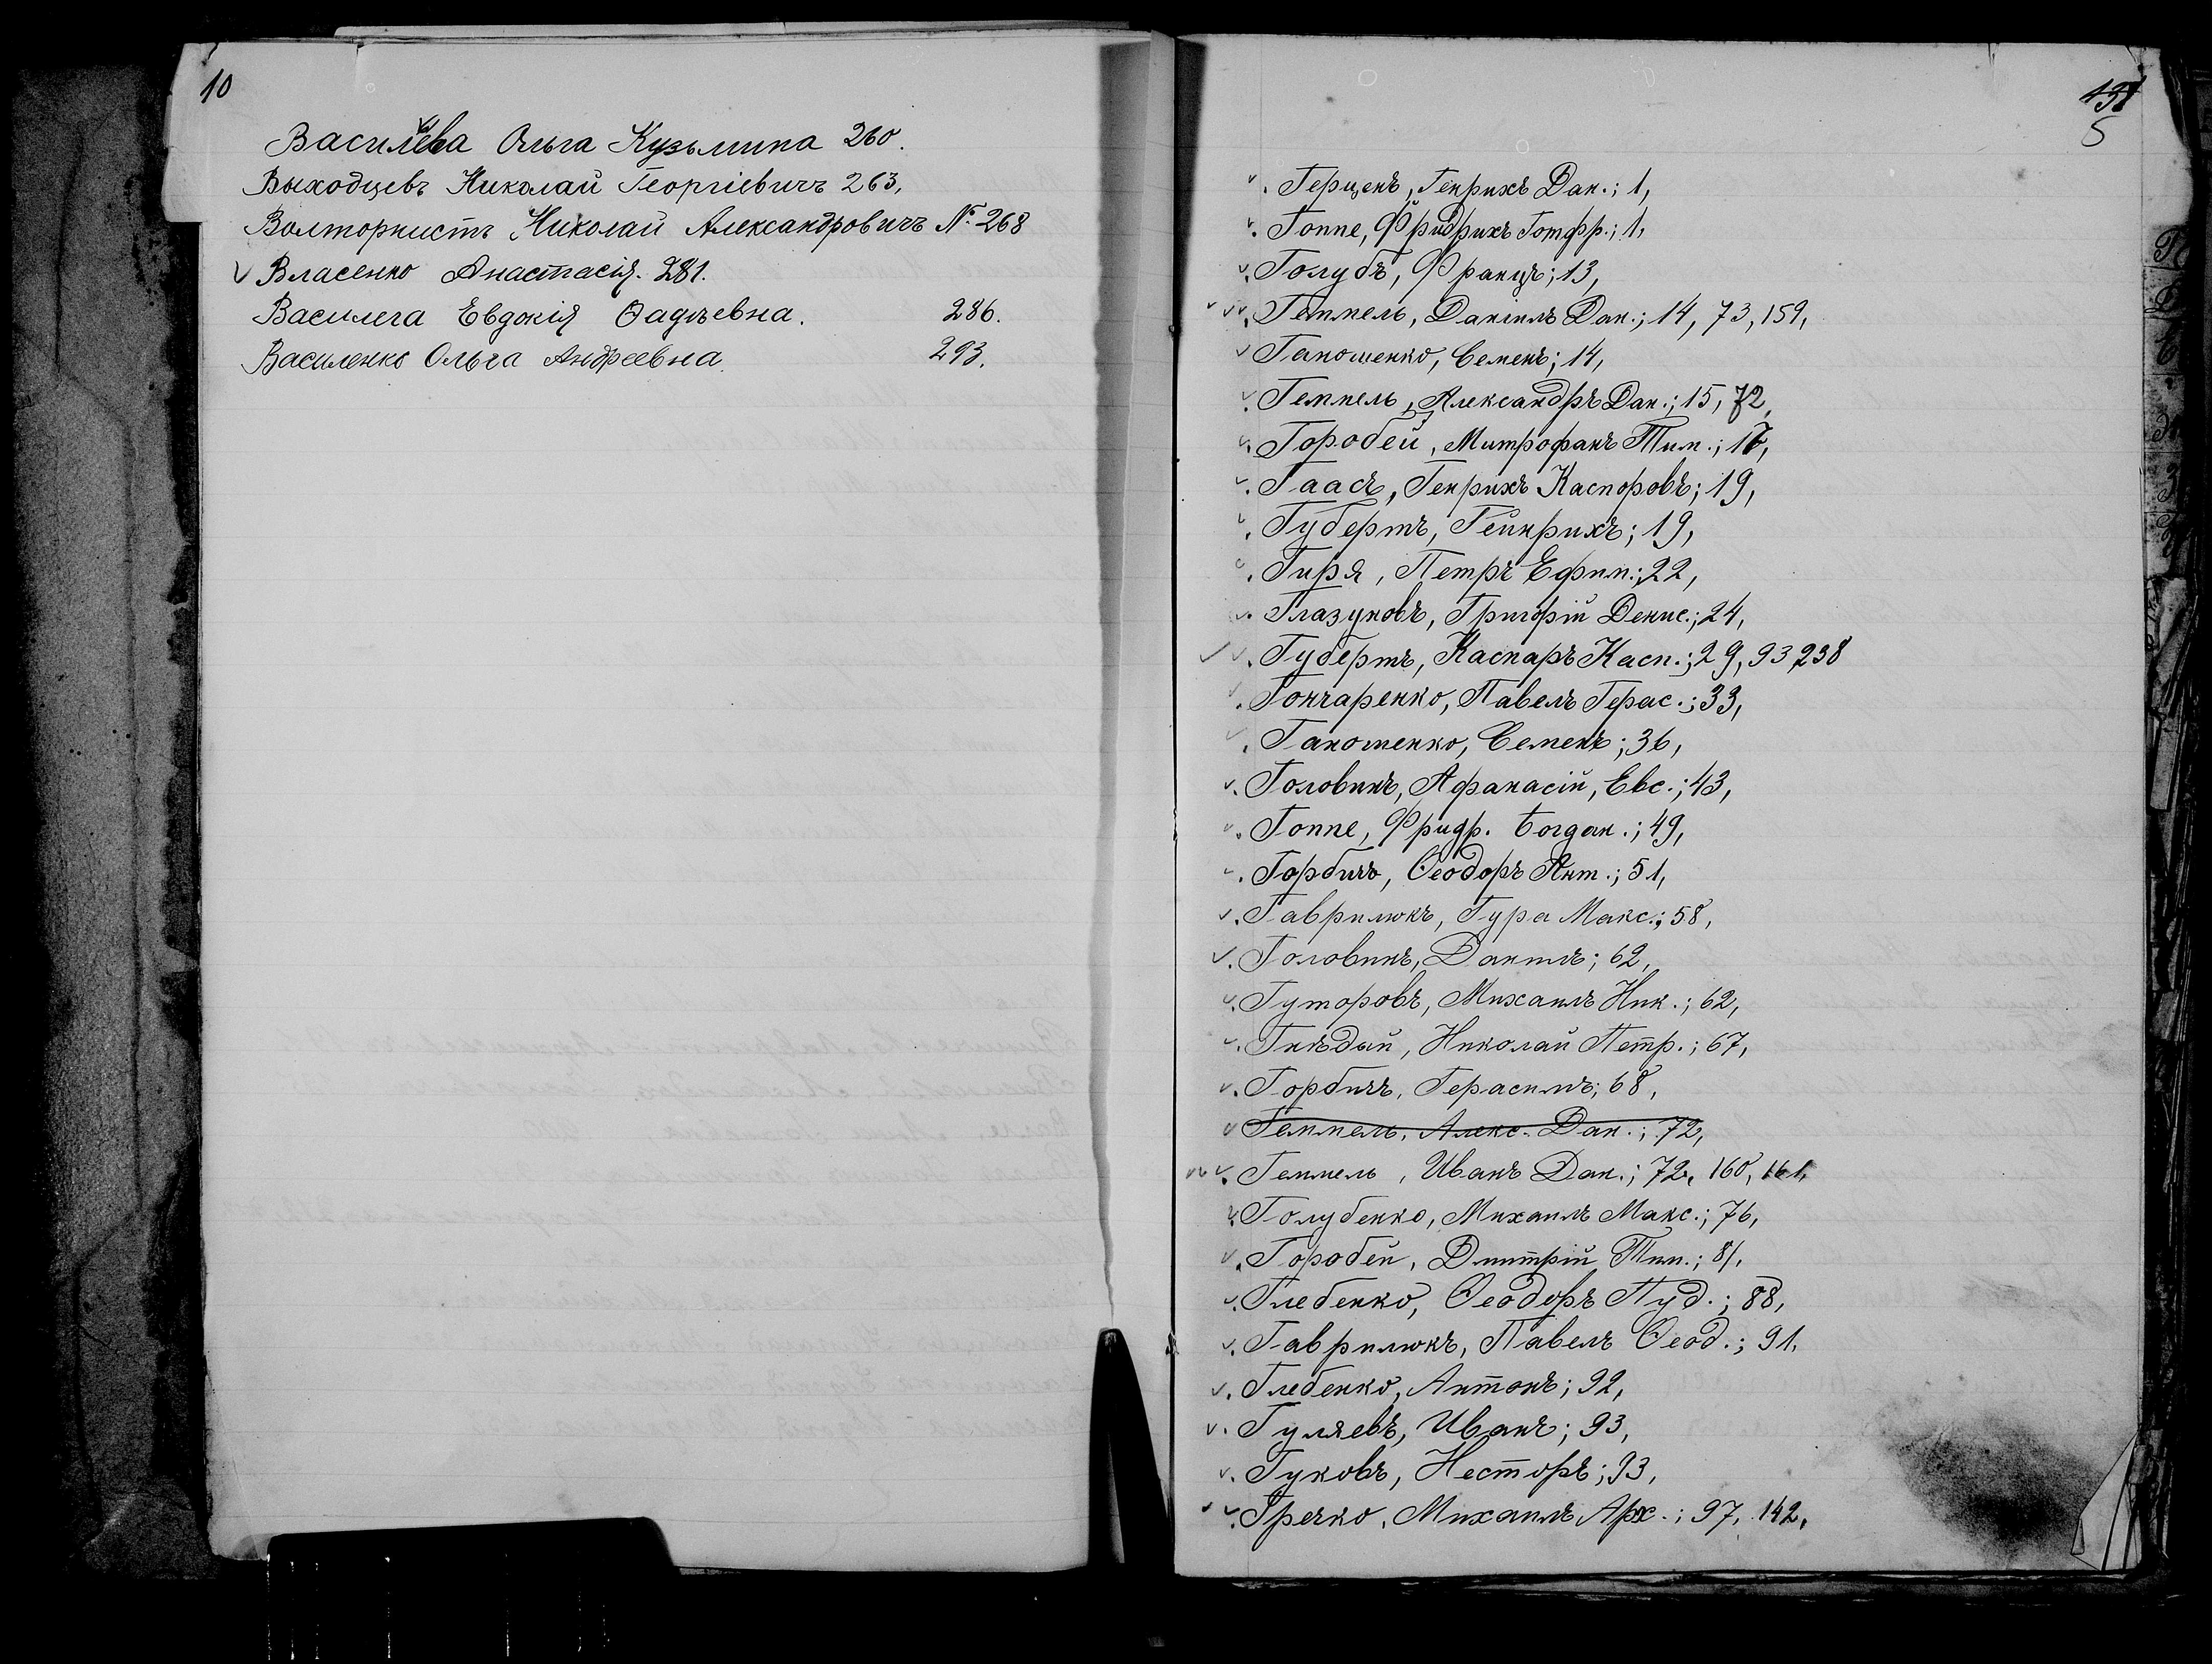 10
Василева Ольга Кузьмина 260.
Выходцевъ Николай Георгіевичъ 263,
Волторнистъ Николай Александровичъ №. 268
Власенко Анастасія. 281.
Василега Евдокія Фадѣевна. 286.
Василенко Ольга Андреевна. 293.
5
Герценъ, Генрихъ Дан.; 1,
Гоппе, Фридрихъ Готфр.; 1,
Голубъ, Францъ; 13,
Геммель, Даніилъ Дан.; 14, 73, 159,
Ганошенко, Семенъ; 14,
Геммель, Александръ Дан.; 15, 72,
Горобей, Митрофанъ Тим.; 17,
Гаасъ, Генрихъ Каспоровъ; 19,
Губертъ, Гейнрихъ; 19,
Гиря, Петръ Ефим.; 22,
Глазуновъ, Григорій Денис.; 24,
Губертъ, Каспаръ Касп.; 29, 93, 238
Гончаренко, Павелъ Герас.; 33,
Ганошенко, Семенъ; 36,
Головинъ, Афанасій, Евс.; 43,
Гоппе, Фридр. Богдан.; 49,
Горбичъ, Ѳеодоръ Ант.; 51,
Гаврилюкъ, Гура Макс.; 58,
Головинъ, Даніилъ; 62,
Гуторовъ, Михаилъ Ник.; 62,
Гнѣдый, Николай Петр.; 67,
Горбичъ, Герасимъ; 68,
Геммель, Алекс. Дан.; 72,
Геммель, Иванъ Дан.; 72, 160, 161,
Голубенко, Михаилъ Макс.; 76,
Горобей, Дмитрій Тим.; 81,
Глебенко, Ѳеодоръ Пуд.; 88,
Гаврилюкъ, Павелъ Ѳеод.; 91,
Глебенко, Антонъ; 92,
Гуляевъ, Иванъ; 93,
Гуковъ, Несторъ; 93,
Гречко, Михаилъ Арх.; 97, 142,